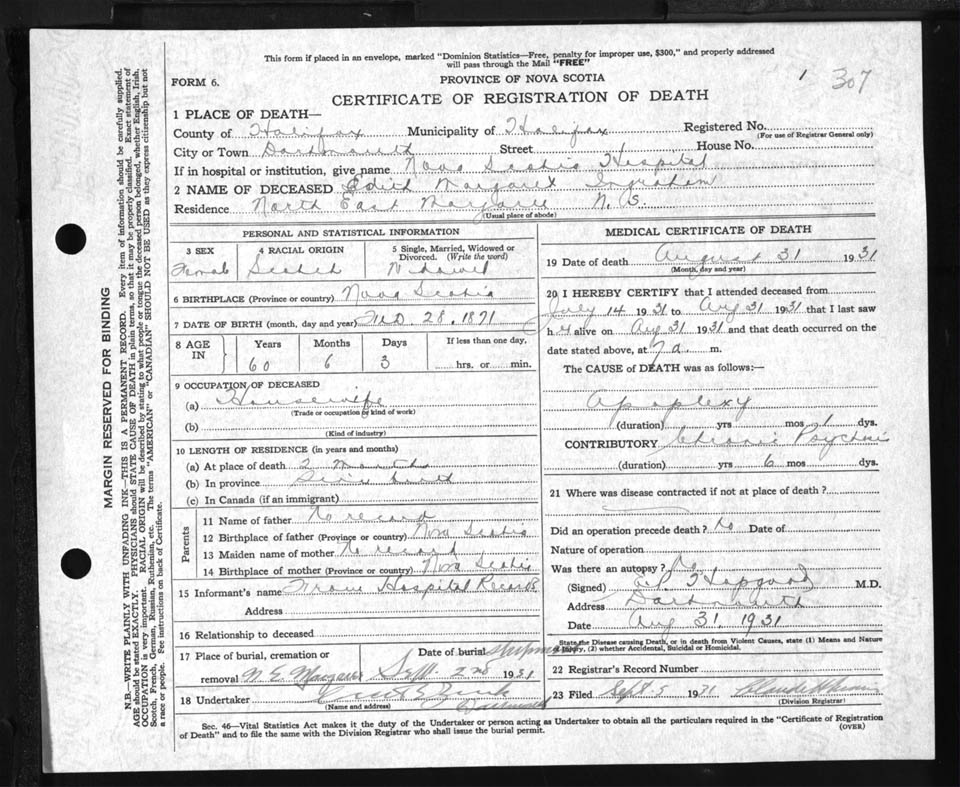 This form if placed in an envelope, marked "Dominion Statistics—Free, penalty for improper use, $300," and properly addressed
will pass through the Mail "FREE"
FORM 6.
PROVINCE OF NOVA SCOTIA
1 307
CERTIFICATE OF REGISTRATION OF DEATH
1 PLACE OF DEATH—
County of Halifax Municipality of Halifax Registered No.
(For use of Registrar General only)
City or Town Dartmouth Street House No.
If in hospital or institution, give name Nova Scotia Hospital
2 NAME OF DECEASED Edith Margaret Ingraham
Residence North East Margaree N. S.
(Usual place of abode)
PERSONAL AND STATISTICAL INFORMATION
3 SEX 4 RACIAL ORIGIN 5 Single, Married, Widowed or Divorced. (Write the word)
Female Scotch Widowed
6 BIRTHPLACE (Province or country) Nova Scotia
7 DATE OF BIRTH (month, day and year) Feb. 28. 1871
8 AGE IN Years Months Days If less than one day,
60 6 3 hrs. or min.
9 OCCUPATION OF DECEASED
(a) Housewife
(Trade or occupation or kind of work)
(b)
(Kind of industry)
10 LENGTH OF RESIDENCE (in years and months)
(a) At place of death 2 months
(b) In province Since birth
(c) In Canada (if an immigrant)
Parents
11 Name of father No record
12 Birthplace of father (Province or country) Nova Scotia
13 Maiden name of mother No record
14 Birthplace of mother (Province or country) Nova Scotia
15 Informant's name From Hospital Records
Address
16 Relationship to deceased
17 Place of burial, cremation or removal N. E. Margaree Date of burial Sept. 2nd 1931
18 Undertaker Dartmouth
(Name and address)
MEDICAL CERTIFICATE OF DEATH
19 Date of death August 31 1931
(Month, day and year)
20 I HEREBY CERTIFY that I attended deceased from
July 14 1931 to Aug 31 1931 that I last saw
h er alive on Aug 31 1931 and that death occurred on the
date stated above, at 7 a. m.
The CAUSE of DEATH was as follows:—
Apoplexy
(duration) yrs mos 1 dys.
CONTRIBUTORY Chronic Psychosis
(duration) yrs 6 mos dys.
21 Where was disease contracted if not at place of death?
Did an operation precede death? No Date of
Nature of operation
Was there an autopsy? No
(Signed) Hopgood M.D.
Address Dartmouth
Date Aug 31. 1931
State the Disease causing Death, or in death from Violent Causes, state (1) Means and Nature
of Injury, (2) whether Accidental, Suicidal or Homicidal.
22 Registrar's Record Number
23 Filed Sept 5 1931
(Division Registrar)
Sec. 46—Vital Statistics Act makes it the duty of the Undertaker or person acting as Undertaker to obtain all the particulars required in the "Certificate of Registration
of Death" and to file the same with the Division Registrar who shall issue the burial permit.
(OVER)
MARGIN RESERVED FOR BINDING
N.B.—WRITE PLAINLY WITH UNFADING INK—THIS IS A PERMANENT RECORD. Every item of information should be carefully supplied.
AGE should be stated EXACTLY. PHYSICIANS should STATE CAUSE OF DEATH in plain terms, so that it may be properly classified. Exact statement of
OCCUPATION is very important. RACIAL ORIGIN will be described by stating to what people or tongue the deceased person belonged, whether English, Irish,
Scotch, French, German, Russian, Ruthenian, etc. The terms "AMERICAN" or "CANADIAN" SHOULD NOT BE USED as they express citizenship but not
a race or people. See instructions on back of Certificate.